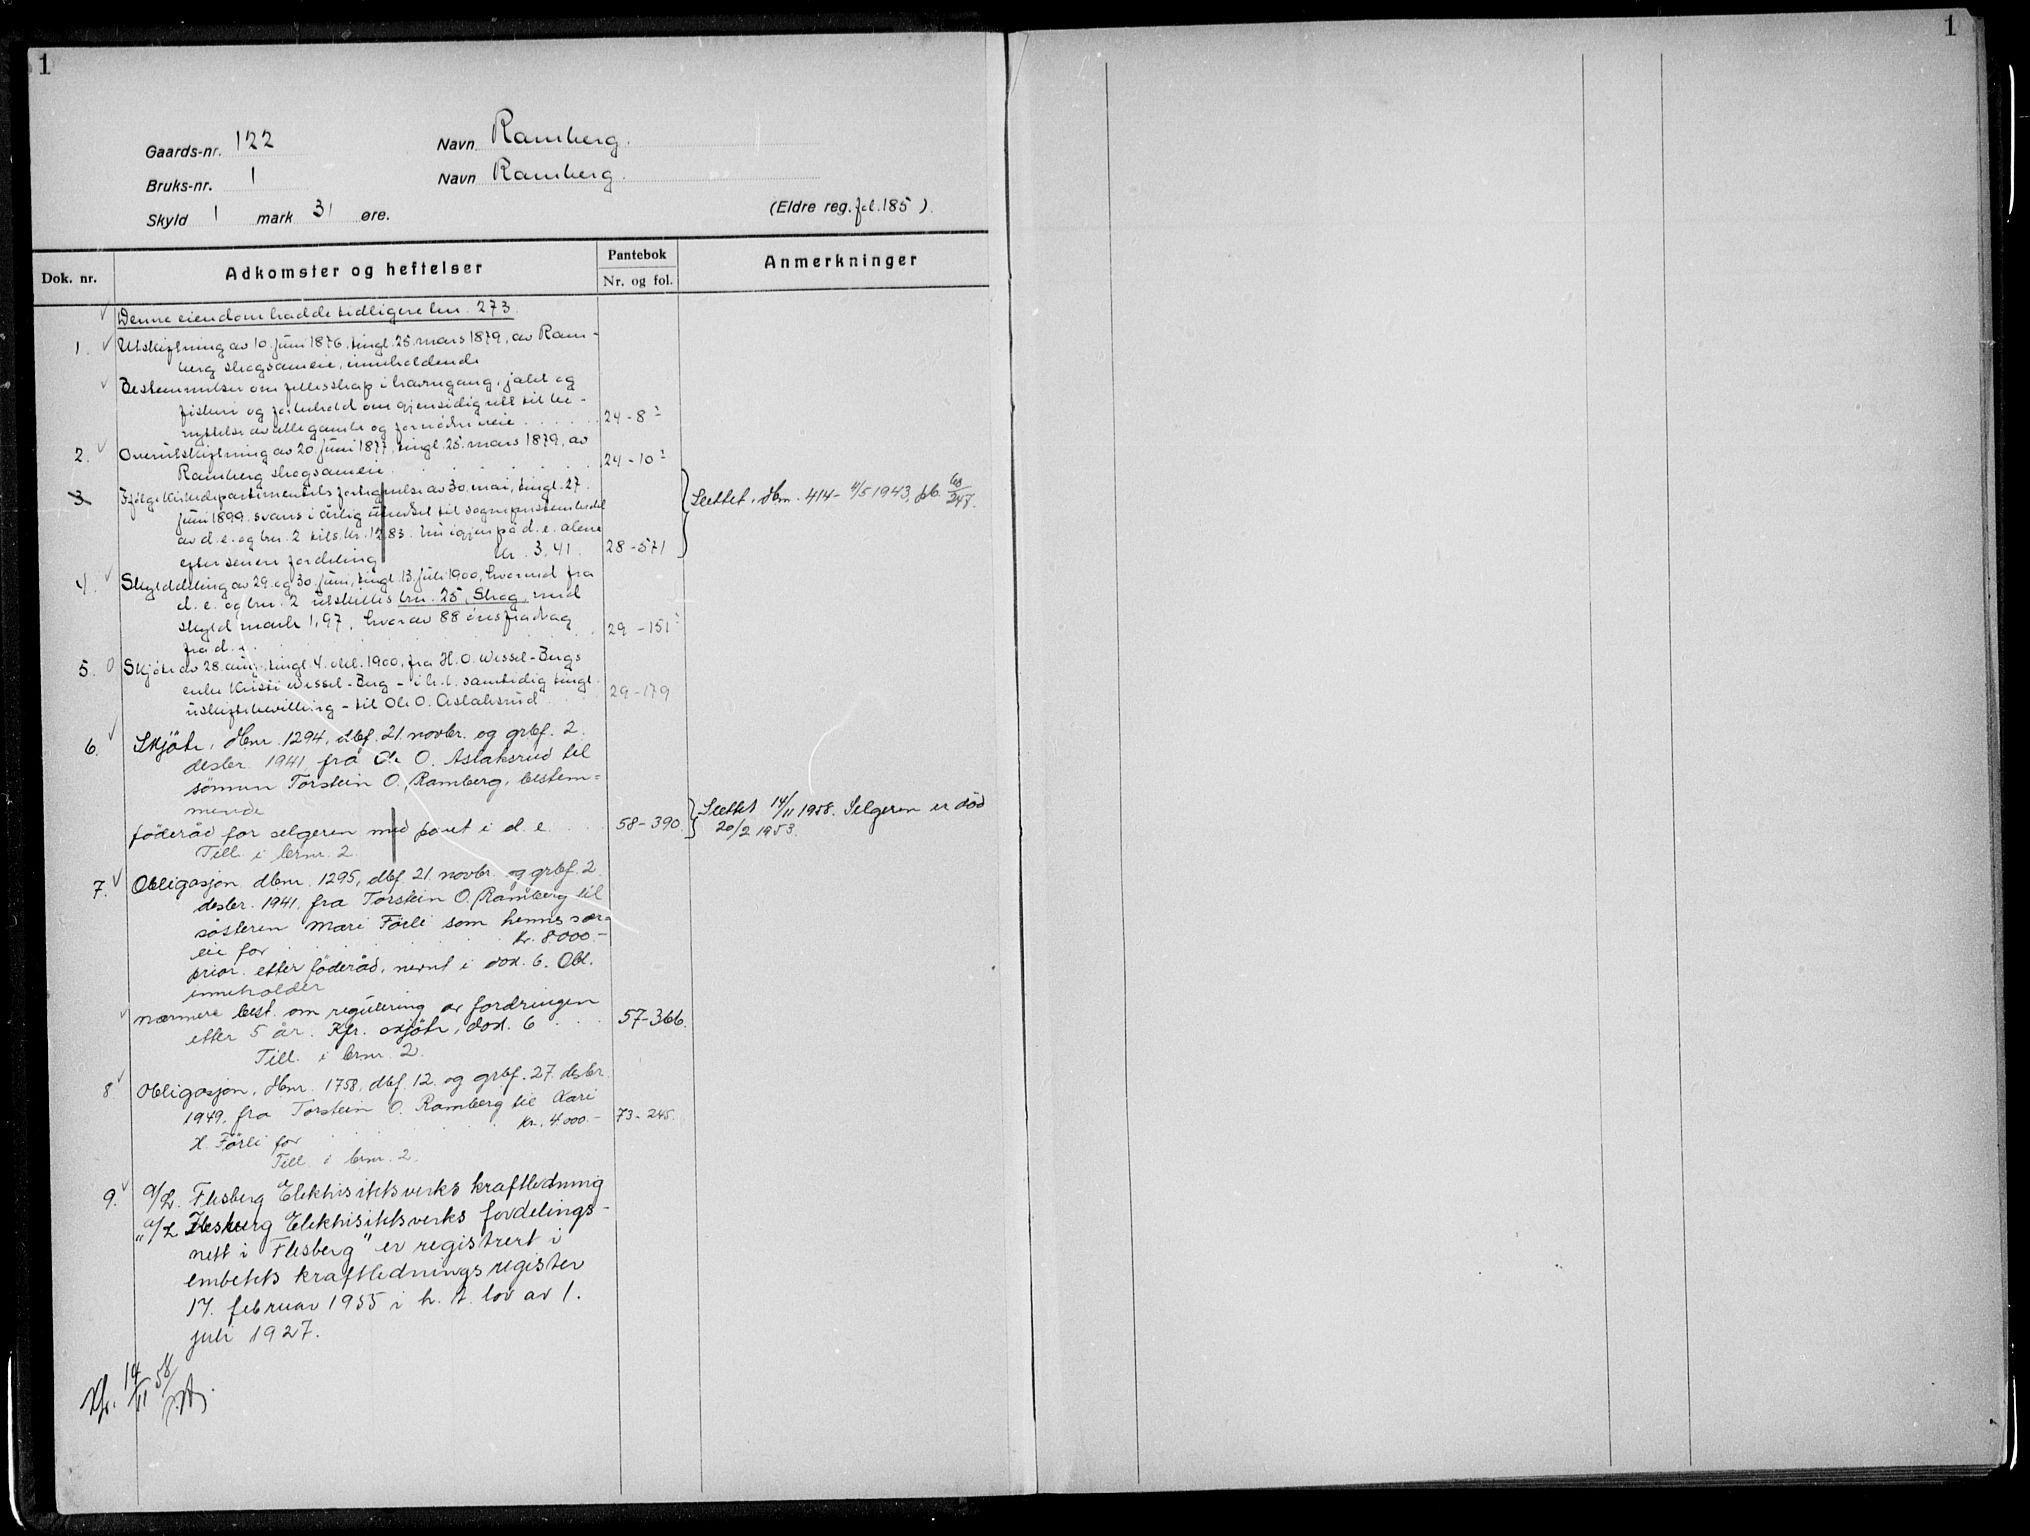 1
1
Gaards-nr. 122 Navn Ramberg.
Bruks-nr. 1 Navn Ramberg.
Skyld 1 mark 31 øre. (Eldre reg. fol. 185).
Dok. nr. Adkomster og heftelser Pantebok Nr. og fol. Anmerkninger
Denne eiendom hadde tidligere lnr. 273.
1. Utskiftning av 10. juni 1876, tingl. 25. mars 1879, av Ram-
berg skogsameie, inneholdende
Bestemmelser om fellesskap i havnegang, jakt og
fiskeri og forbehold om gjensidig rett til be-
nyttelse av alle gamle og fornødne veie . . . . 24-8
2. Overutskiftning av 20. juni 1877, tingl. 25. mars 1879, av
Ramberg skogsameie. . . . 24-10
3 Ifølge Kirkedepartementets fastsettelse av 30. mai, tingl. 27.
juni 1899 svares i årlig til sogneprestembedet
av d. e. og bnr. 2 tils. kr. 12.83. Nu igjen på d. e. alene
efter senere fordeling kr. 3.41. 28-571
Slettet, dbnr. 414 - 4/5 1943, pb. 60/247.
4. Skylddeling av 29. og 30. juni, tingl. 13. juli 1900, hvorved fra
d. e. og bnr. 2 utskilles bnr. 25, Skog, med
skyld mark 1,97, hvorav 88 øres fradrag
fra d. e. . . . 29-151
5. Skjøte av 28. aug., tingl. 4. okt. 1900, fra H. O. Wessel-Bergs
enke Kristi Wessel-Berg - i h. t. samtidig tingl.
uskiftebevilling - til Ole O. Aslaksrud . . 29-179
6. Skjöte, dbnr. 1294, dbf. 21. novbr. og grbf. 2.
desbr. 1941 fra Ole O. Aslaksrud til
sönnen Torstein O. Ramberg, bestem=
mende
föderåd for selgeren med pant i d. e. . . 58-390.
Slettet 14/11 1958. Selgeren er död
20/2 1953.
Till. i brnr. 2.
7. Obligasjon, dbnr. 1295, dbf. 21. novbr. og grbf. 2.
desbr. 1941. fra Torstein O. Ramberg til
søsteren Mari Förli som hennes sær-
eie for . . . kr. 8000.-
prior. etter föderåd, nevnt i dok. 6. Obl.
inneholder
nærmere best. om regulering av fordringen
etter 5 år. Kfr. skjöte, dok. 6 . . . 57-366.
Till. i brnr. 2.
8. Obligasjon, dbnr. 1758, dbf. 12. og grbf. 27. desbr.
1949, fra Torstein O. Ramberg til Kari
H. Förli for . . . kr. 4000.- 73-245.
Till. i brnr. 2.
9. A/L. Flesberg Elektrisitetsverks kraftledning
"A/L Flesberg Elektrisitetsverks fordelings-
nett i Flesberg" er registrert i
embetets kraftledningsregister
17. februar 1955 i h. t. lov av 1.
juli 1927.
Kfr. 14/11 58